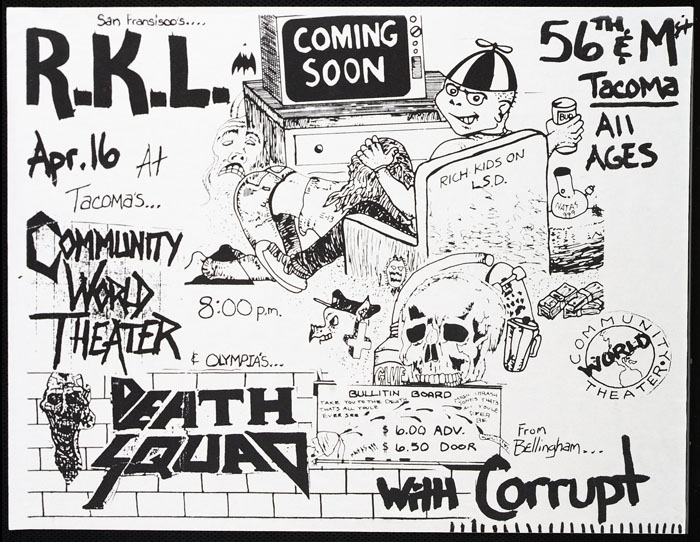 San Fransisco's....
R.K.L.
COMING
SOON
56TH & M St
TACOMA
All
AGES
Apr. 16 At
TACOMA'S...
COMMUNITY
WORLD
THEATER
8:00 p.m.
BUD
RICH KIDS ON
L.S.D.
NATAS
& OLYMPIA'S...
DEATH
SQUAD
GLUE
COMMUNITY
WORLD
THEATER
BULLITIN BOARD
TAKE YOU TO THE DEATH
THATS ALL YOU'LE
EVER SEE
$ 6.00 ADV.
$ 6.50 DOOR
From
Bellingham...
With Corrupt